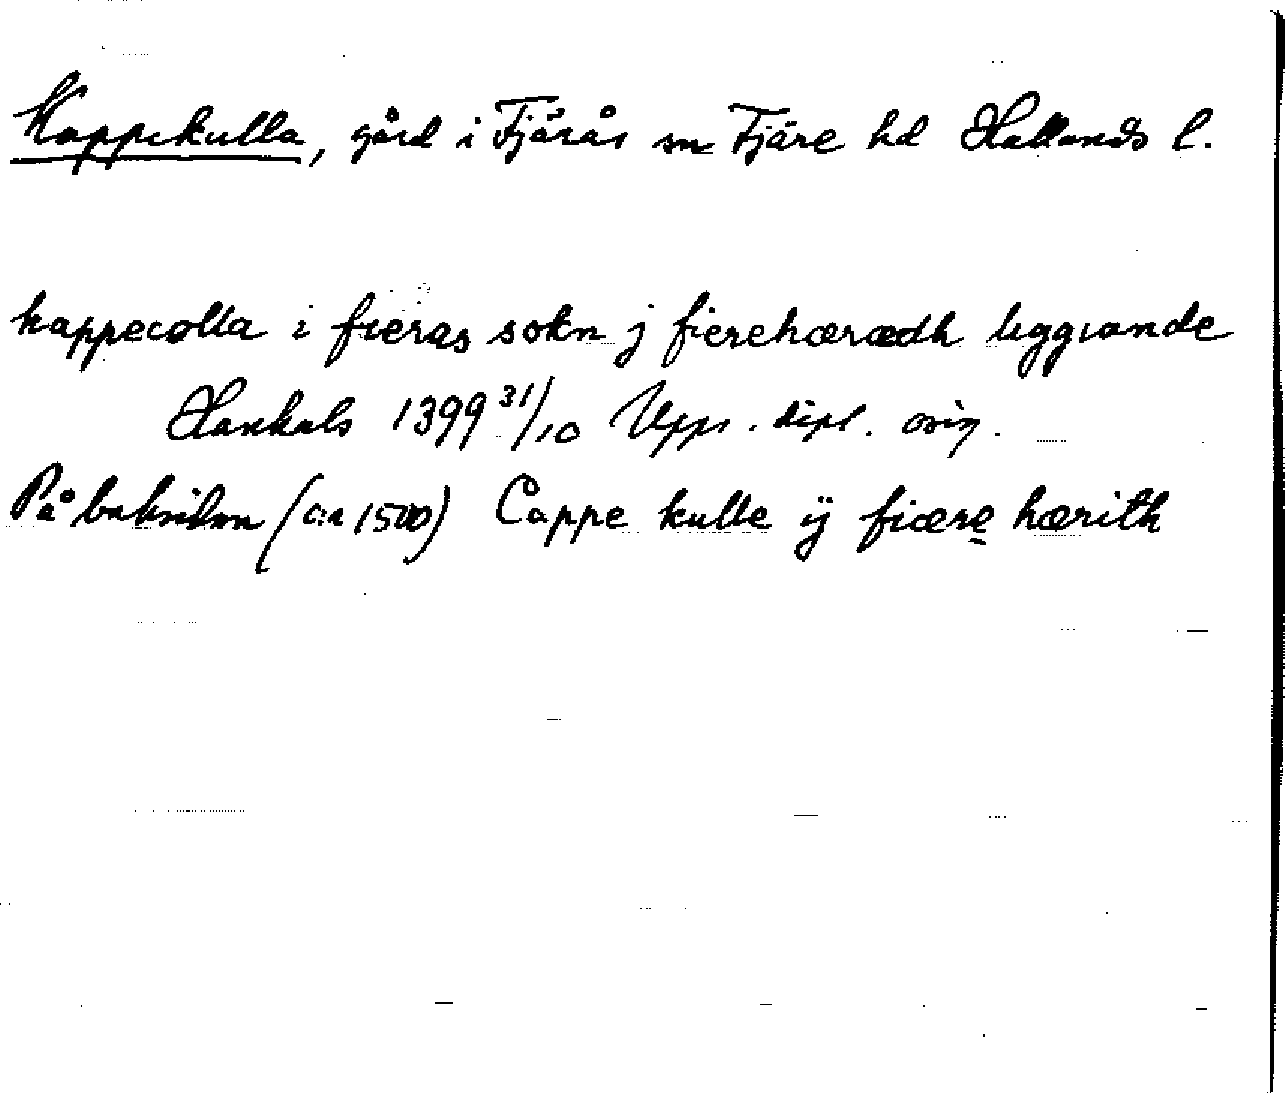 Kappekulla, gård i Fjärås sn Fjäre hd Hallands l.
kappecolla i fieras sokn j fierehæraedh liggiande
Hanhals 1399 31/10 Upps. dipl. orig.
På baksidan (ca 1500) Cappe kulle ÿ fiære hærith